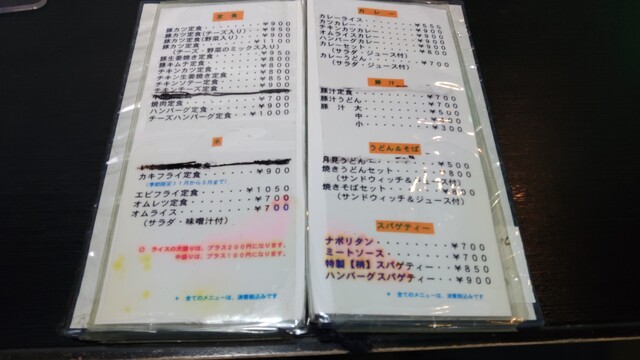 定食
豚カツ定食・・・・・・・・・¥900
豚カツ定食(チーズ入り)・・・¥950
豚カツ定食(野菜入り)・・・¥1100
豚カツ定食・・・・・・・・・¥950
(チーズ・野菜のミックス入り)
豚生姜焼き定食・・・・・・¥800
豚キムチ定食・・・・・・・¥800
チキンカツ定食・・・・・・¥800
チキン生姜焼き定食・・・・¥850
チキンソテー定食・・・・・¥900
焼肉定食・・・・・・・・・¥700
ハンバーグ定食・・・・・・¥900
チーズハンバーグ定食・・・¥1000
カキフライ定食・・・・・・¥900
(季節限定11月から3月まで)
エビフライ定食・・・・・・¥1050
オムレツ定食・・・・・・・¥700
オムライス・・・・・・・・¥700
(サラダ・味噌汁付)
◎ ライスの大盛りは、プラス200円になります。
中盛りは、プラス100円になります。
* 全てのメニューは、消費税込みです
カレー
カレーライス・・・・・・・¥550
カツカレー・・・・・・・
チキンカツカレー・・・・
オムライスカレー・・・・・¥900
ハンバーグカレー・・・・・¥900
カレーセット・・・・・・・¥800
(サラダ・ジュース付)
カレーうどん・・・・・・・¥700
(サラダ・ジュース付)
豚汁
豚汁定食・・・・・・・・・¥700
豚汁うどん・・・・・・・・¥700
豚汁 大・・・・・・・・・¥500
中・・・・・・・・・
小・・・・・・・・・¥300
うどん&そば
月見うどん・・・・・・・・¥500
焼きうどんセット・・・・・¥800
(サンドウィッチ&ジュース付)
焼きそばセット・・・・・・¥800
(サンドウィッチ&ジュース付)
スパゲティー
ナポリタン・・・・・・・・¥700
ミートソース・・・・・・・¥700
特製【梢】スパゲティー・・¥850
ハンバーグスパゲティー・・¥900
* 全てのメニューは、消費税込みです